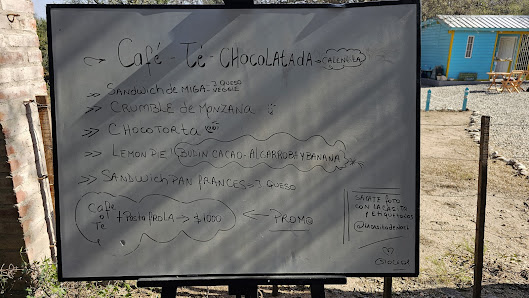 Café - Té - CHOCOLATADA → CALENTITA
SANDWICH de MIGA → J. QUESO
VEGGIE
CRUMBLE de MANZANA
CHOCOTORTA
LEMON PIE! BUDIN CACAO - ALGARROBA Y BANANA
SANDWICH PAN FRANCES → J. QUESO
Café
o
Té + PastaFROLA → $1000 ← PROMO
SACATE FOTO
CON LA CASITA
Y ETIQUETANOS